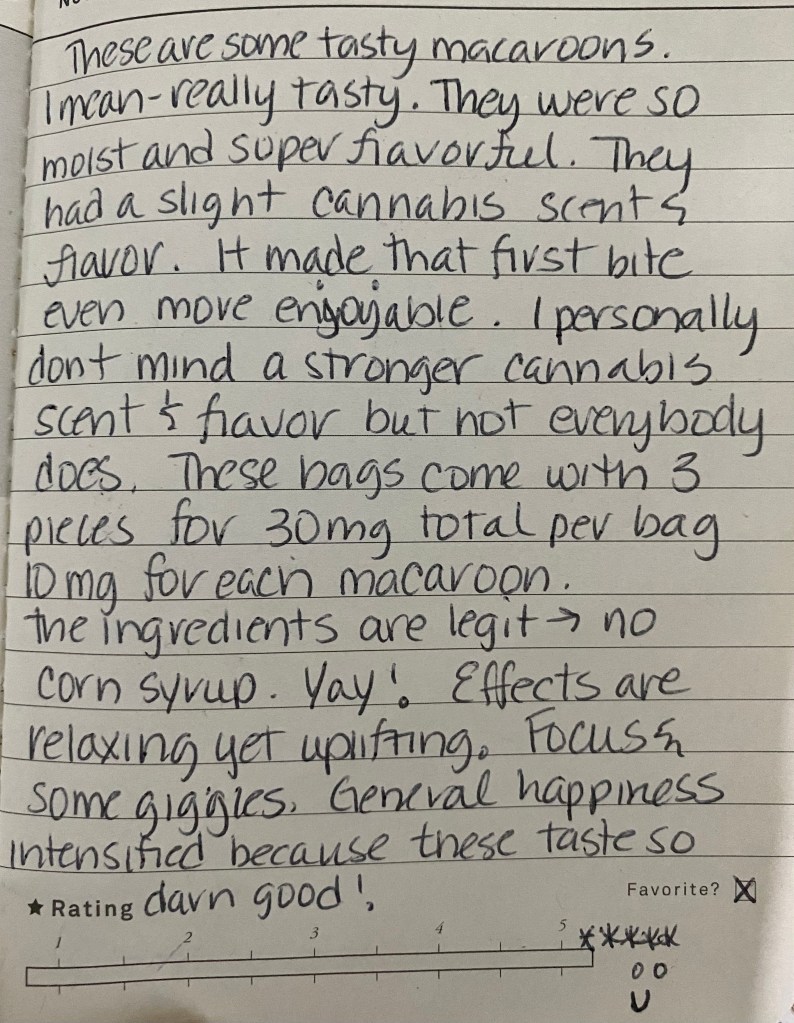 These are some tasty macaroons.
I mean - really tasty. They were so
moist and super flavorful. They
had a slight cannabis scent &
flavor. It made that first bite
even more enjoyable. I personally
dont mind a stronger cannabis
scent & flavor but not everybody
does. These bags come with 3
pieces for 30mg total per bag
10mg for each macaroon.
the ingredients are legit → no
corn syrup. Yay! Effects are
relaxing yet uplifting. Focus &
some giggles. General happiness
intensified because these taste so
darn good!
★ Rating
Favorite? X
1 2 3 4 5 *****